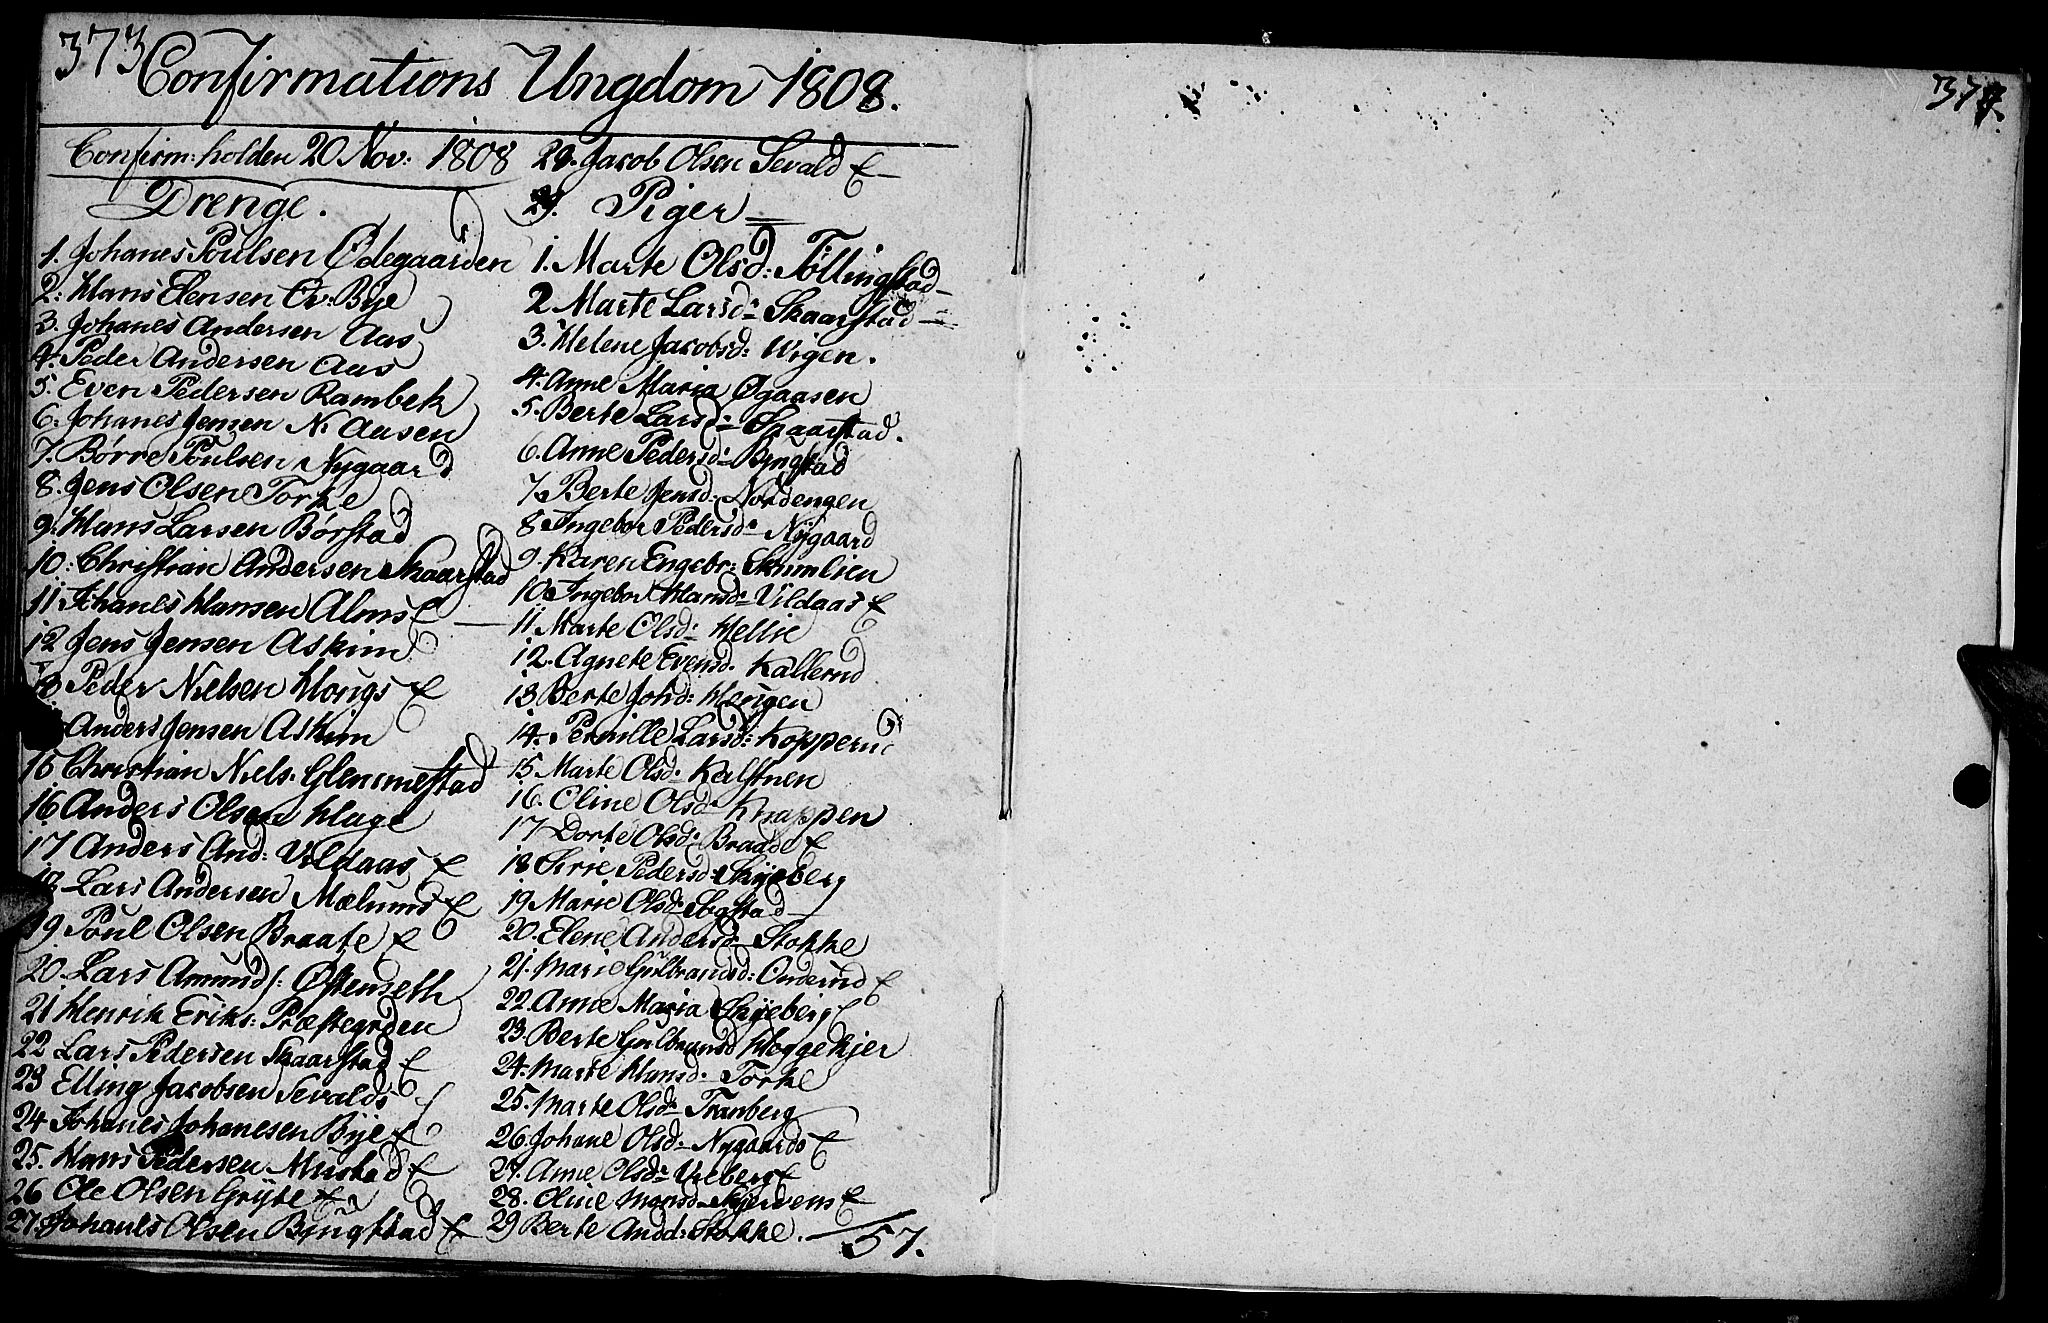 373 Confirmations Ungdom 1808.
Confirm: holden 20 Nov: 1808
Drenge.
1. Johanes Poulsen Ødegaarden
2: Hans Elensen Ev: Bye
3. Johanes Andersen Aas
4. Peder Andersen Aas
5. Even Pedersen Rambek
6. Johanes Jensen N. Aasen
7. Børre Poulsen Nygaard
8. Jens Olsen Torke
9: Hans Larsen Børstad
10: Christian Andersen Skaarstad
11 Johanes Hansen Alms E
12 Jens Jensen Askim
Peder Nielsen Hougs E
Anders Jensen Askim
15 Christian Niels. Glemmestad
16 Anders Olsen Hage
17 Anders And: Vildaas E
18 Lars Andersen Mælums E
19 Poul Olsen Braate E
20. Lars Amunds: Østenseth
21 Henrik Eriks: Præstegrden
22 Lars Pedersen Skaarstad E
23 Elling Jacobsen Sevalds E
24 Johanes Johanesen Bye E
25. Hans Pedersen Mustad E
26 Ole Olsen Gryte E
27. Johanes Olsen Byngstad E
28. Jacob Olsen Sevald E
29. Piger
1. Marte Olsd: Töllingstad
2 Marte Larsd: Skaarstad
3. Helene Jacobsd: Wigen.
4. Anne Maria Øgaasen
5. Berte Larsd: Skaarstad.
6. Anne Pedersd: Byngstad
7. Berte Jensd: Nordengen
8 Ingebor Pedersd: Nygaard
9. Karen Engebr: Skumlien
10. Ingebor Hansd: Vildaas E
11 Marte Olsd: Hellie
12. Agnete Evensd. Kallerud
13 Berte Johd: Hengen
14. Pernille Larsd: Kopperud
15 Marte Olsd.
16. Oline Olsd: Knappen
17 Dorte Olsd: Braade E
18 Sirie Pedersd: Skyeberg
19 Marie Olsd: Sogstad
20. Elene Andersd: Stokke
21. Marie Gulbrandsd: Onderud E
22. Anne Maria Skyeberg E
23. Berte Gulbransd Hoggekjer
24. Marte Hansd. Torke
25. Marte Olsd: Tranberg
26. Johane Olsd: Nygaards E
27. Anne Olsd: Veberg E
28. Oline Monsd: Skjervens E
29 Berte Andd: Stokke. 57.